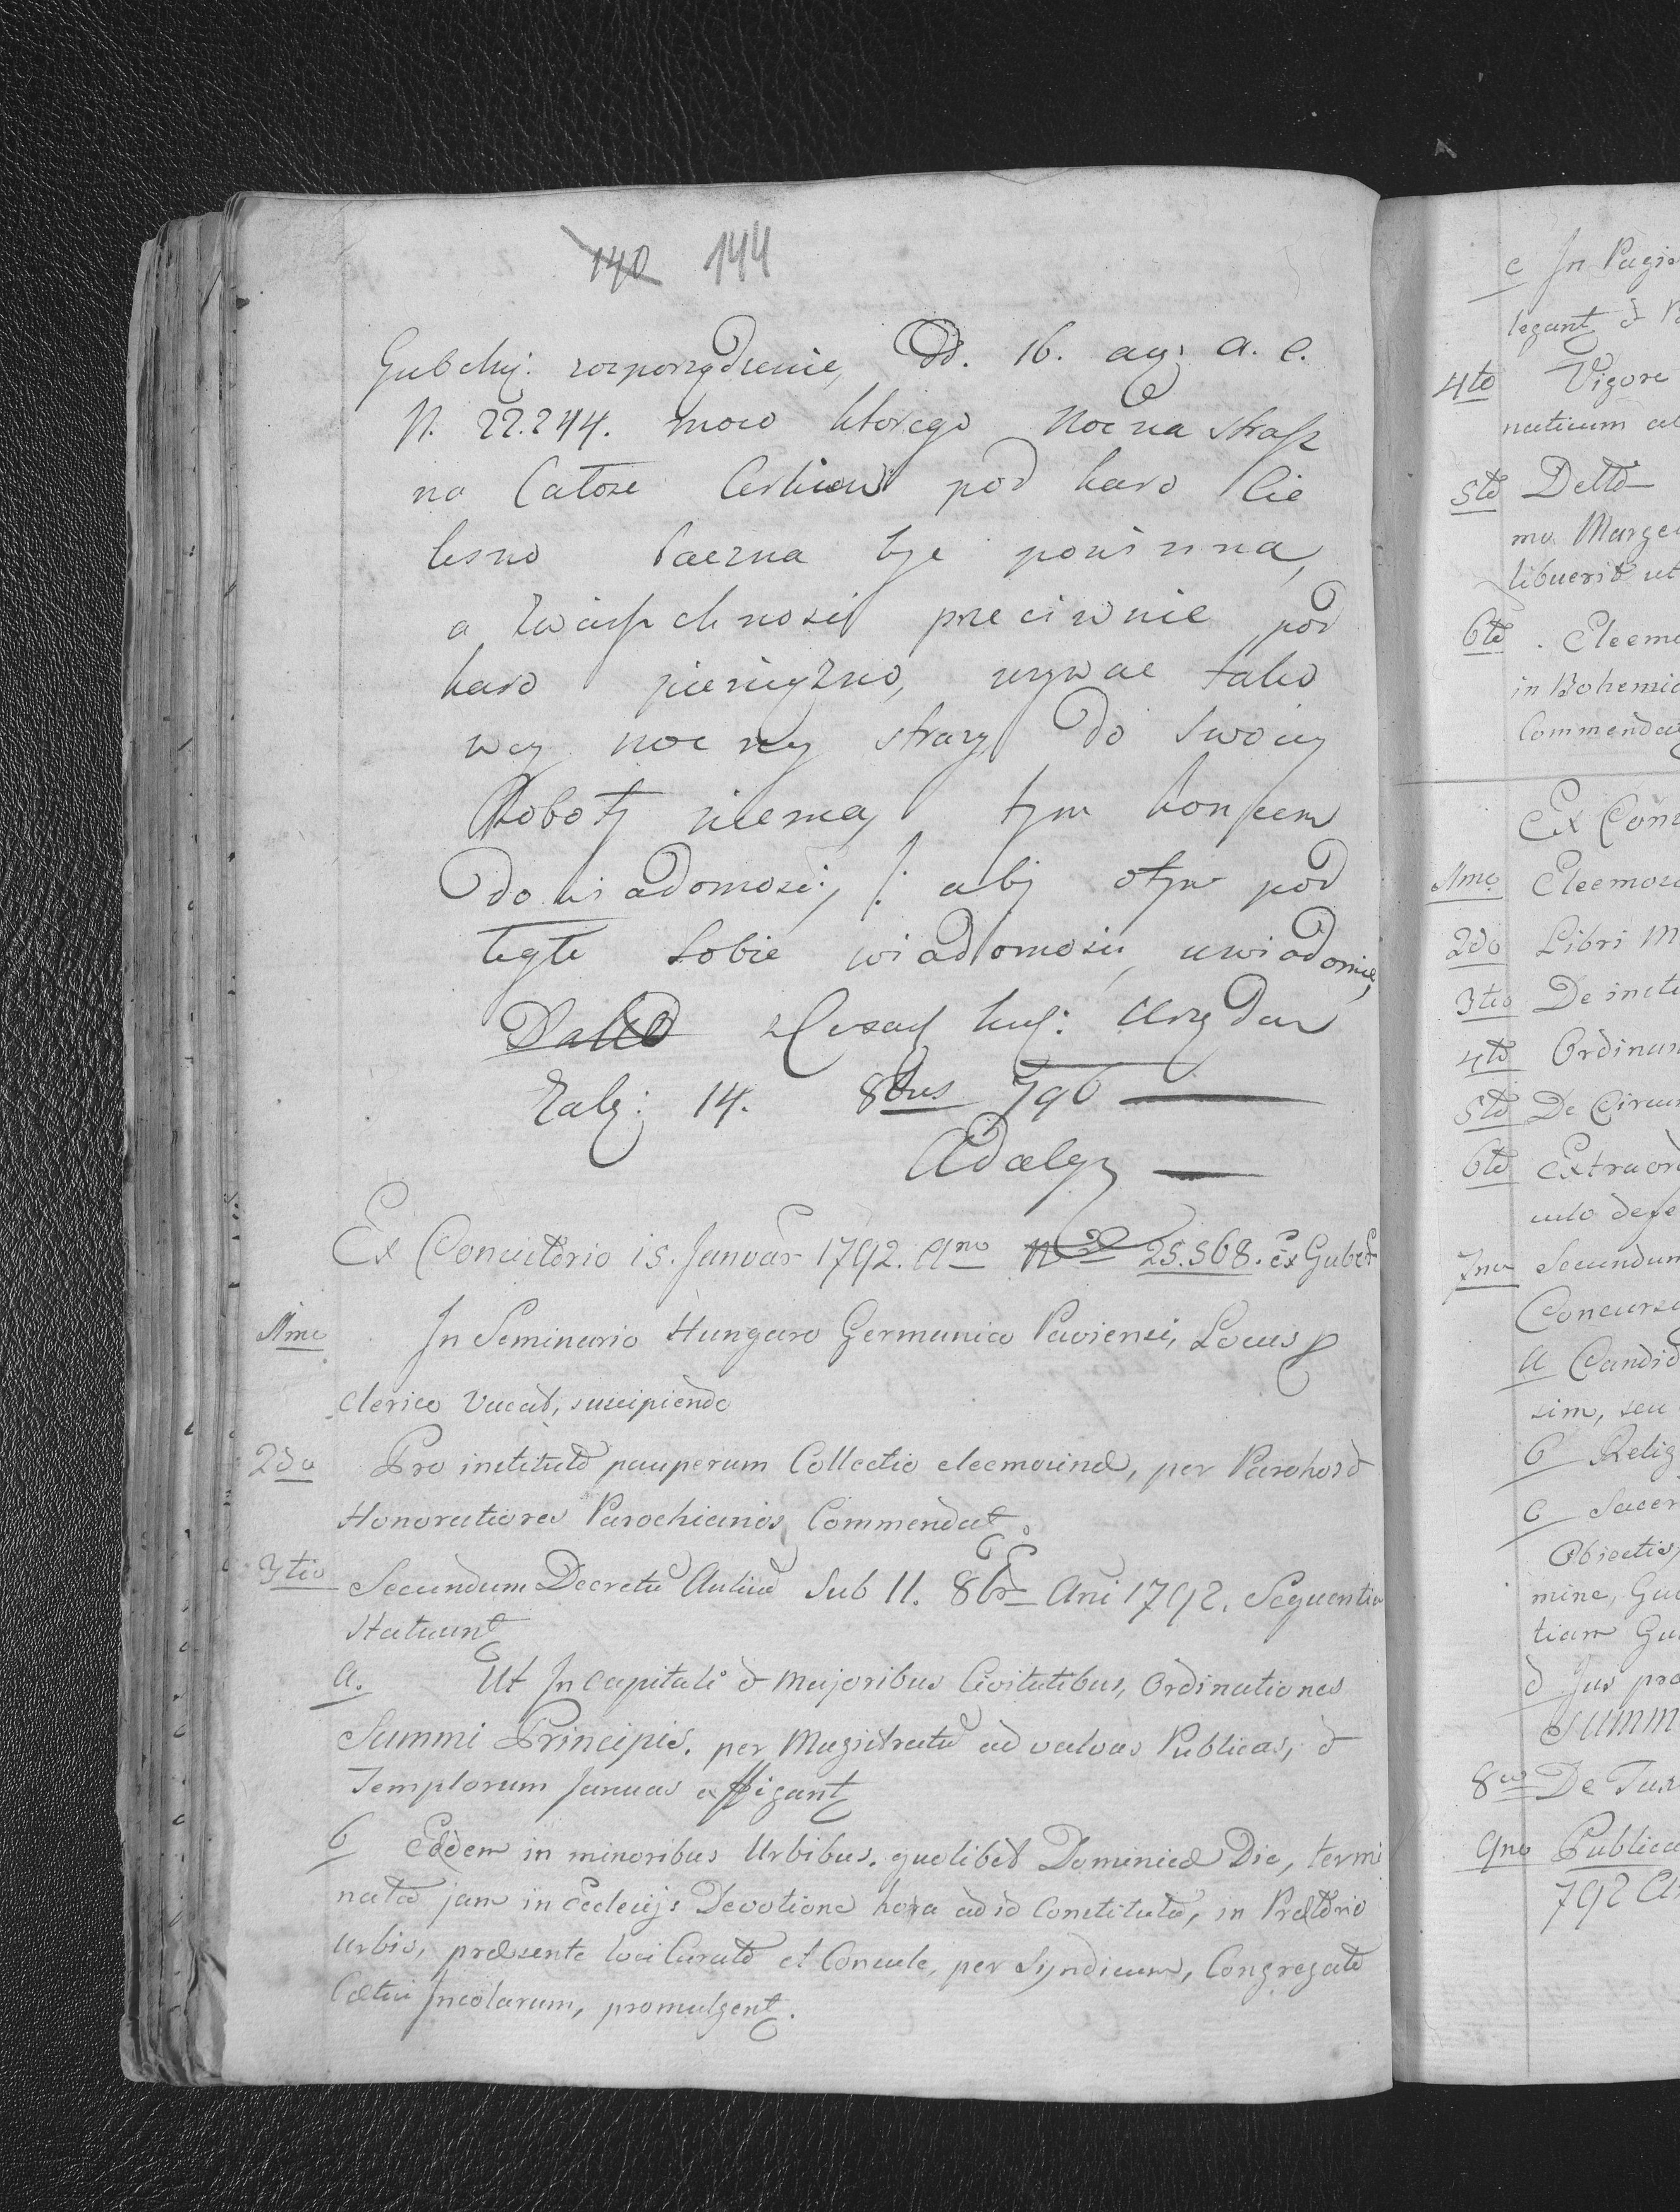 140 144
Gubchy: rozporządzenie, Dd. 16. aug: a. c.
N. 22.244. moco ktorego Nocna strasz
na Catore pod karo Cie
lesno baczna byc powinna,
a Zwiesz chnosci przeciwnie pod
karo pieniężno, uzywac tako
wey nocney strazy do swoiey
Roboty niema, tym koncem
do wiadomosci, /: aby otym pod
legte sobie wiadomosci, uwiadomic,
Urzędu
Zale: 14. 8bris 796
Ex Concistorio 15. Januar 1792. Ano 25.568. ex Guber
1mo In Seminario Hungaro Germanico Paviensi, Locus p
Clerico Vacat, suscipiendo
2do Pro instituto pauperum Collectio eleemosinæ, per Parohos &
Honoratiores Parochianos Commendat.
3tio Secundum Decretu Aulicu Sub 11. 8br Ani 1792. Sequentia
Statuunt
a. Ut In Capitali & Majoribus Civitatibus, Ordinationes
Summi Principis. per Magistratu ad valvas Publicas, &
Templorum Januas affigant
b Eædem in minoribus Urbibus. quolibet Dominica Die, termi
nata jam in Ecclesijs Devotione hora ad id Constituta, in Prætorio
Urbis, præsente loci Curato et Consule, per Syndicum, Congregato
Cætui Incolarum, promulgent.
c In Pagi
legant &
4to Vigore
naticum
5to Detto
mo
libuerit ut
6to . Eleemo
in Bohemi
Commenda
Ex Con
1mo Eleemos
2do Libri M
3tio De insti
4to Ordinan
5to De Circu
6to Extraord
culo defe
7mo Secundum
Concurs
a Candid
sim, seu
b Relig
c Sacer
Obiectis
mine, Gu
tiam Gu
d Jus pro
Summ
8vo De Tax
9no Publica
792